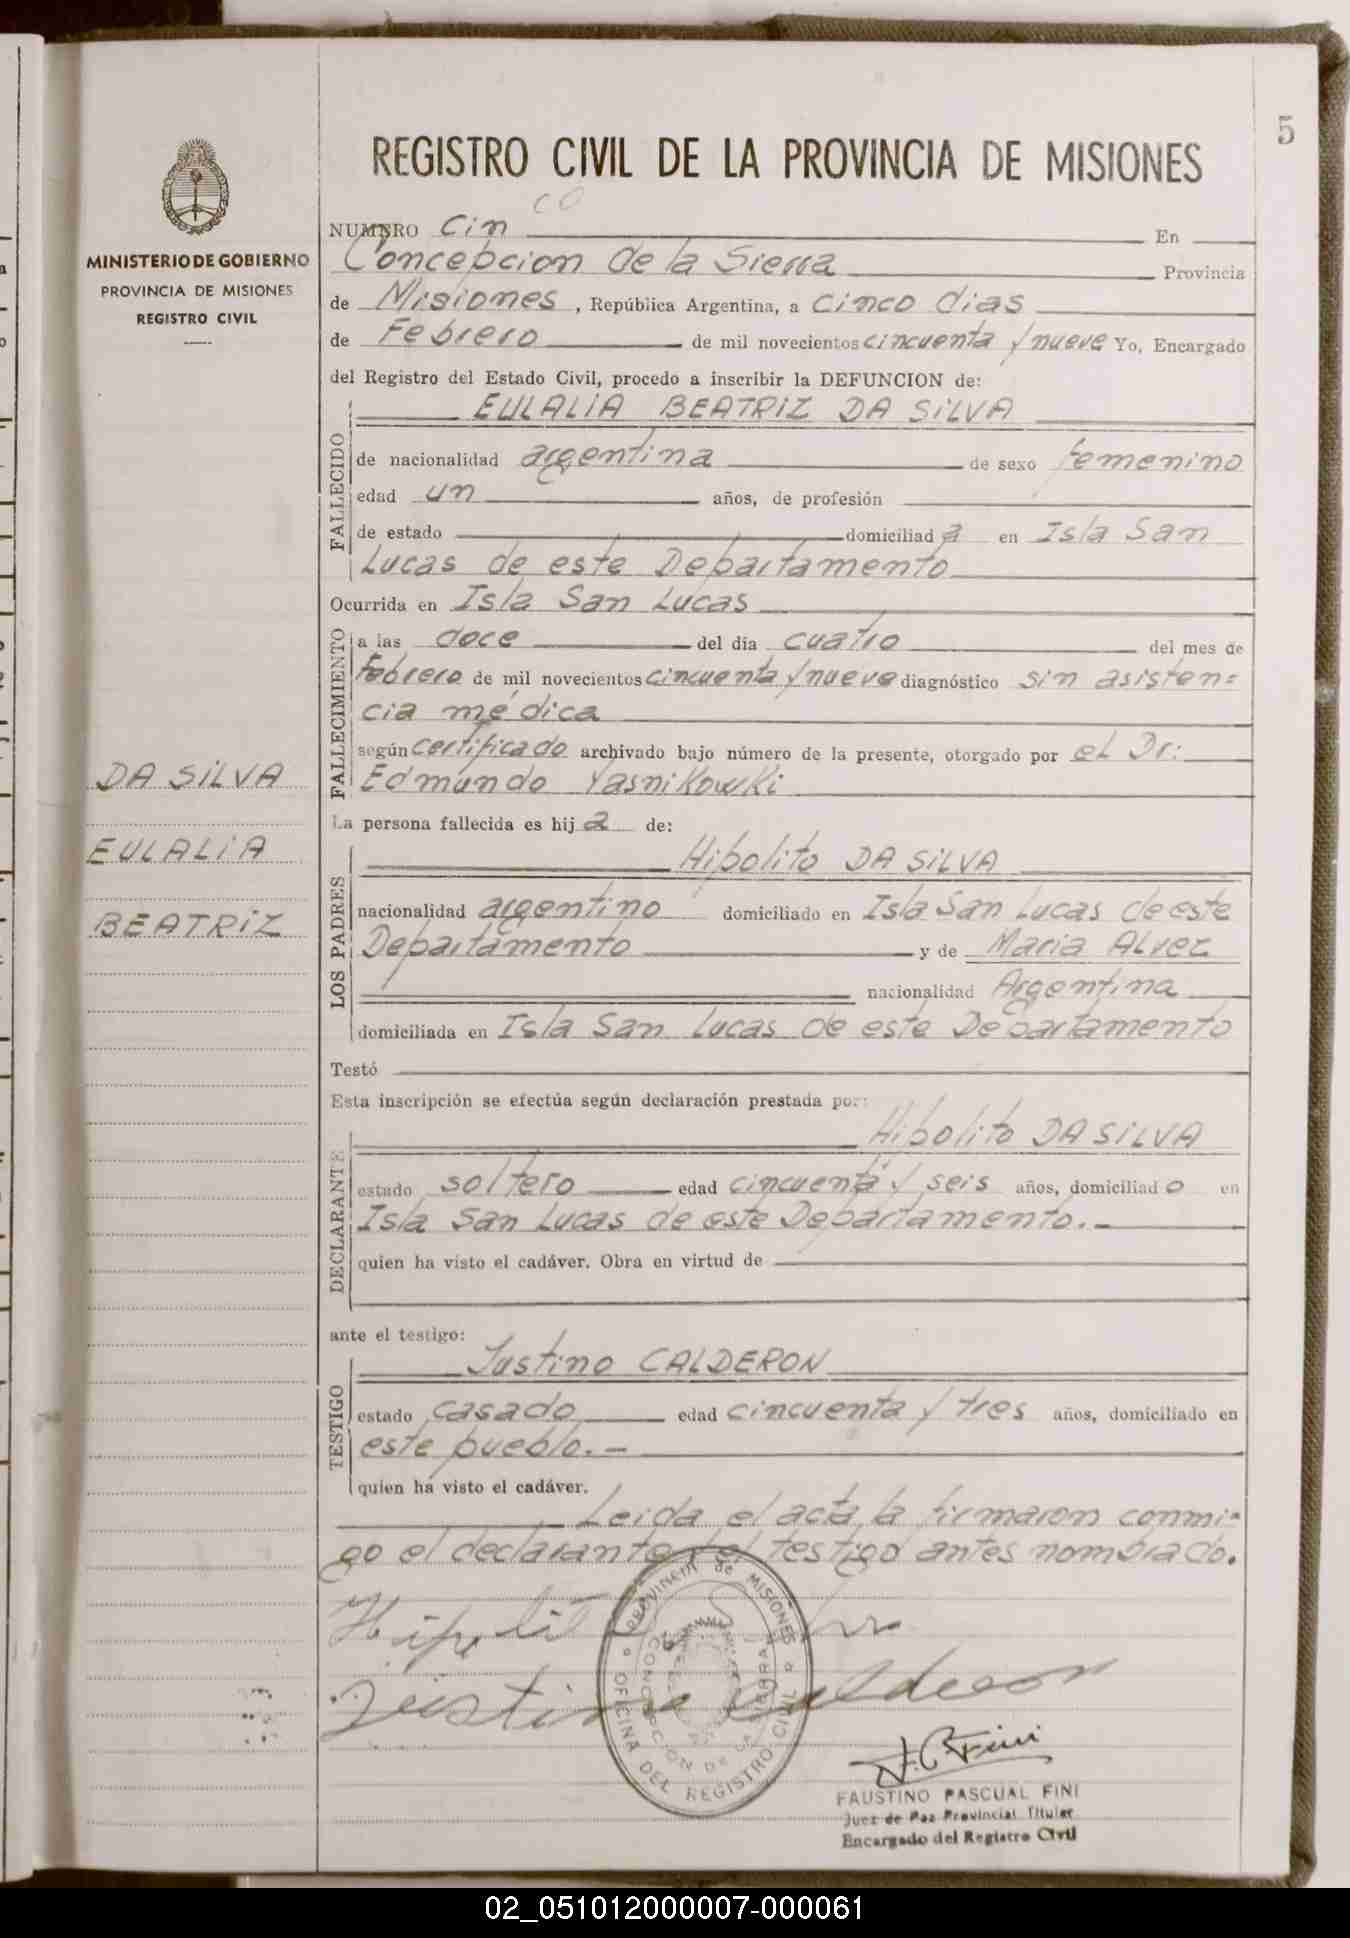 5
MINISTERIO DE GOBIERNO
PROVINCIA DE MISIONES
REGISTRO CIVIL
DA SILVA
EULALIA
BEATRIZ
REGISTRO CIVIL DE LA PROVINCIA DE MISIONES
NUMERO Cinco En
Concepcion de la Sierra Provincia
de Misiones, República Argentina, a cinco dias
de Febrero de mil novecientos cincuenta y nueve Yo, Encargado
del Registro del Estado Civil, procedo a inscribir la DEFUNCION de:
EULALIA BEATRIZ DA SILVA
FALLECIDO
de nacionalidad argentina de sexo femenino
edad un años, de profesión
de estado domiciliada en Isla San
Lucas de este Departamento
Ocurrida en Isla San Lucas
FALLECIMIENTO
a las doce del día cuatro del mes de
febrero de mil novecientos cincuenta y nueve diagnóstico sin asisten=
cia médica
según certificado archivado bajo número de la presente, otorgado por el Dr:
Edmundo Yasnikowki
La persona fallecida es hija de:
LOS PADRES
Hipolito DA SILVA
nacionalidad argentino domiciliado en Isla San Lucas de este
Departamento y de Maria ALVEZ
nacionalidad Argentina
domiciliada en Isla San Lucas de este Departamento
Testó
Esta inscripción se efectúa según declaración prestada por:
DECLARANTE
Hipolito DA SILVA
estado soltero edad cincuenta y seis años, domiciliado en
Isla San Lucas de este Departamento.-
quien ha visto el cadáver. Obra en virtud de
ante el testigo:
TESTIGO
Justino CALDERON
estado casado edad cincuenta y tres años, domiciliado en
este pueblo.-
quien ha visto el cadáver.
Leida el acta la firmaron conmi=
go el declarante y el testigo antes nombrado.
Hipolit
Justino Calderon
PROVINCIA de MISIONES
OFICINA DEL REGISTRO CIVIL
CONCEPCION DE LA SIERRA
F. P. Fini
FAUSTINO PASCUAL FINI
Juez de Paz Provincial Titular
Encargado del Registro Civil
02_051012000007-000061